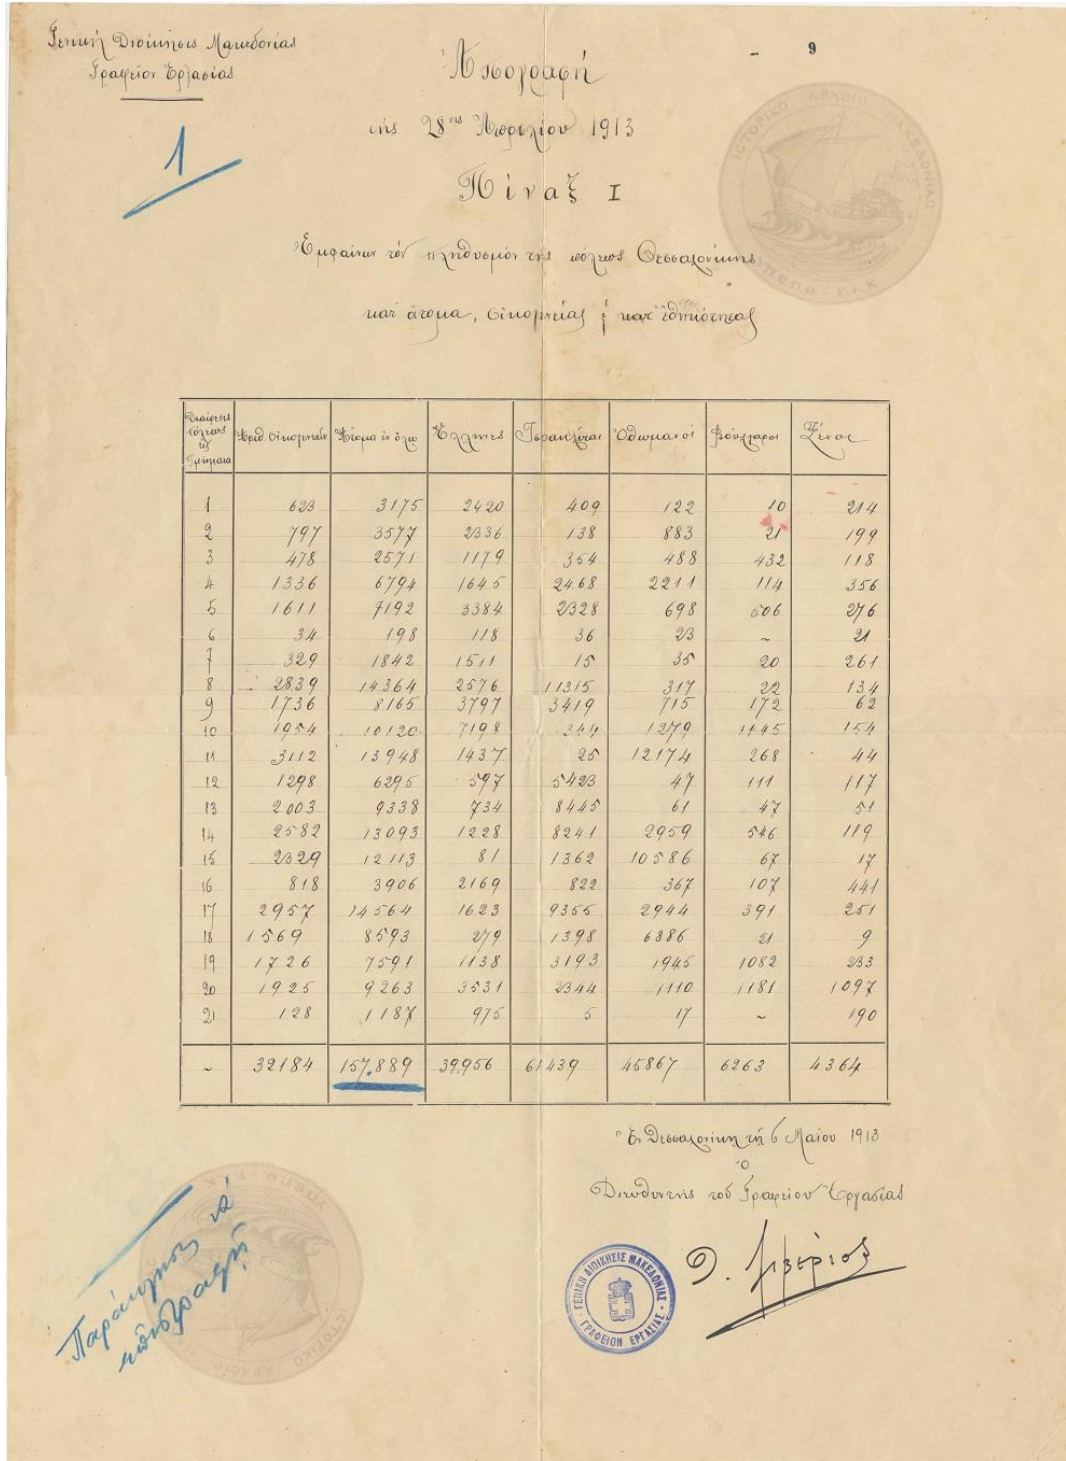 Γενική Διοίκησις Μακεδονίας
Γραφείον Εργασίας
9
1
Ἀπογραφή
τῆς 28ης Ἀπριλίου 1913
Πίναξ I
Ἐμφαίνων τόν πληθυσμόν τῆς πόλεως Θεσσαλονίκης
κατ' ἄτομα, οἰκογενείας ἤ κατ' ἐθνικότητας
Διαίρεσις πόλεως εἰς Τμήματα Ἀριθ. οἰκογενειῶν Ἄτομα ἐν ὅλῳ Ἕλληνες Ἰσραηλῖται Ὀθωμανοί Βούλγαροι Ξένοι
1 623 3175 2420 409 122 10 214
2 797 3577 2336 138 883 21 199
3 478 2571 1179 354 488 432 118
4 1336 6794 1645 2468 2211 114 356
5 1611 7192 3384 2328 698 506 276
6 34 198 118 36 23 ~ 21
7 329 1842 1511 15 35 20 261
8 2839 14364 2576 11315 317 22 134
9 1736 8165 3797 3419 715 172 62
10 1954 10120 7198 344 1279 1145 154
11 3112 13948 1437 25 12174 268 44
12 1298 6295 597 5423 47 111 117
13 2003 9338 734 8445 61 47 51
14 2582 13093 1228 8241 2959 546 119
15 2329 12113 81 1362 10586 67 17
16 818 3906 2169 822 367 107 441
17 2957 14564 1623 9355 2944 391 251
18 1569 8593 279 1398 6886 21 9
19 1726 7591 1138 3193 1945 1082 233
20 1925 9263 3531 2344 1110 1181 1097
21 128 1187 975 5 17 ~ 190
~ 32184 157.889 39.956 61439 45867 6263 4364
Ἐν Θεσσαλονίκῃ τῇ 6 Μαΐου 1913
Ὁ
Διευθυντής τοῦ Γραφείου Ἐργασίας
ΓΕΝΙΚΗ ΔΙΟΙΚΗΣΙΣ ΜΑΚΕΔΟΝΙΑΣ
ΓΡΑΦΕΙΟΝ ΕΡΓΑΣΙΑΣ
ΙΣΤΟΡΙΚΟ ΑΡΧΕΙΟ ΜΑΚΕΔΟΝΙΑΣ
ΥΠΕΠΘ - ΓΑΚ